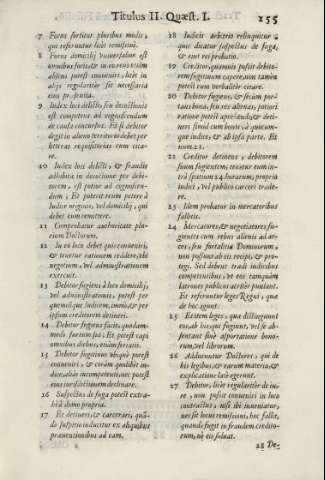 Titulus II. Quæst. I.
155
7 Forus sortitus pluribus modis,
qui referuntur latè remissivè.
8 Forus domicilij universalis est
omnibus foris, & in eo reus etiam
alibi potest conveniri, licèt in
alijs regulariter sit necessaria
eius præsentia.
9 Iudex loci delicti seu decoctionis
est competens ad cognoscendum
de causa concursus. Et si debitor
degit in alieno territorio debet per
literas requisitorias rem citare.
10 Iudex loci delicti, & fraudis
adhibitæ in decoctione per debitorem,
est potior ad cognoscendum,
Et poterit reum petere à
Iudice originis, vel domicilij, qui
debet eum remittere.
11 Comprobatur authoritate plurium
Doctorum.
12 In eo loco debet quis conveniri,
& tenetur rationem reddere, ubi
negotium, vel administrationem
exercuit.
13 Debitor fugiens à loco domicilij,
vel administrationis, potest per
quemcumque Iudicem, imò, & per
ipsum creditorem detineri.
14 Debitor fugiens facit, quodammodo
furtum sui; Et potest capi
omnibus diebus, etiam feriatis.
15 Debitor fugitivus ubique potest
conveniri, & coràm quolibet iudice,
aliàs incompetenti, nec potest
eius iurisdictionem declinare.
16 Suspectus de fuga potest extrahi
à domo propria.
17 Et detineri, & carcerari, quando
suspicio inducitur ex aliquibus
præmeditationibus ad eam.
18 Iudicis arbitrio relinquitur,
quis dicatur suspectus de fuga,
& sunt res probatio.
19 Creditor, quamvis possit debitorem
fugitivum capere, non tamen
poterit eum verbaliter citare.
20 Debitor fugiens, & secum portans
bona, seu res alienas, potiori
ratione potest apræhendi, & detineri
simul cum bonis, à quicumque
iudice, & ab ipsa parte. Et
num. 21.
22 Creditor detinens, debitorem
suum fugientem, tenetur eum intrà
spatium 24. horarum, proprio
iudici, vel publico carceri tradere.
23 Idem probatur in mercatoribus
fallitis.
24 Mercatores, & negotiatores fugientes
cum rebus alienis ad arces,
seu fortalitia Dominorum,
non possunt ab eis recipi, & protegi.
Sed debent tradi iudicibus
competentibus, ut eos tamquàm
latrones publicos acriter puniant.
Et referuntur leges Regni, quæ
de hoc agunt.
25 Et item leges, quæ distinguunt
eos, ab his, qui fugiunt, vel se absentant
sine asportatione bonorum,
vel librorum.
26 Adducuntur Doctores, qui de
his legibus, & earum materia, &
explicatione latè egerunt.
27 Debitor, licèt regulariter de iure,
non possit conveniri in loco
contractus, nisi ibi inveniatur,
nec sit locus remissioni, hoc fallit,
quando fugit in fraudem creditorum,
ut eis soluat.
28 De-